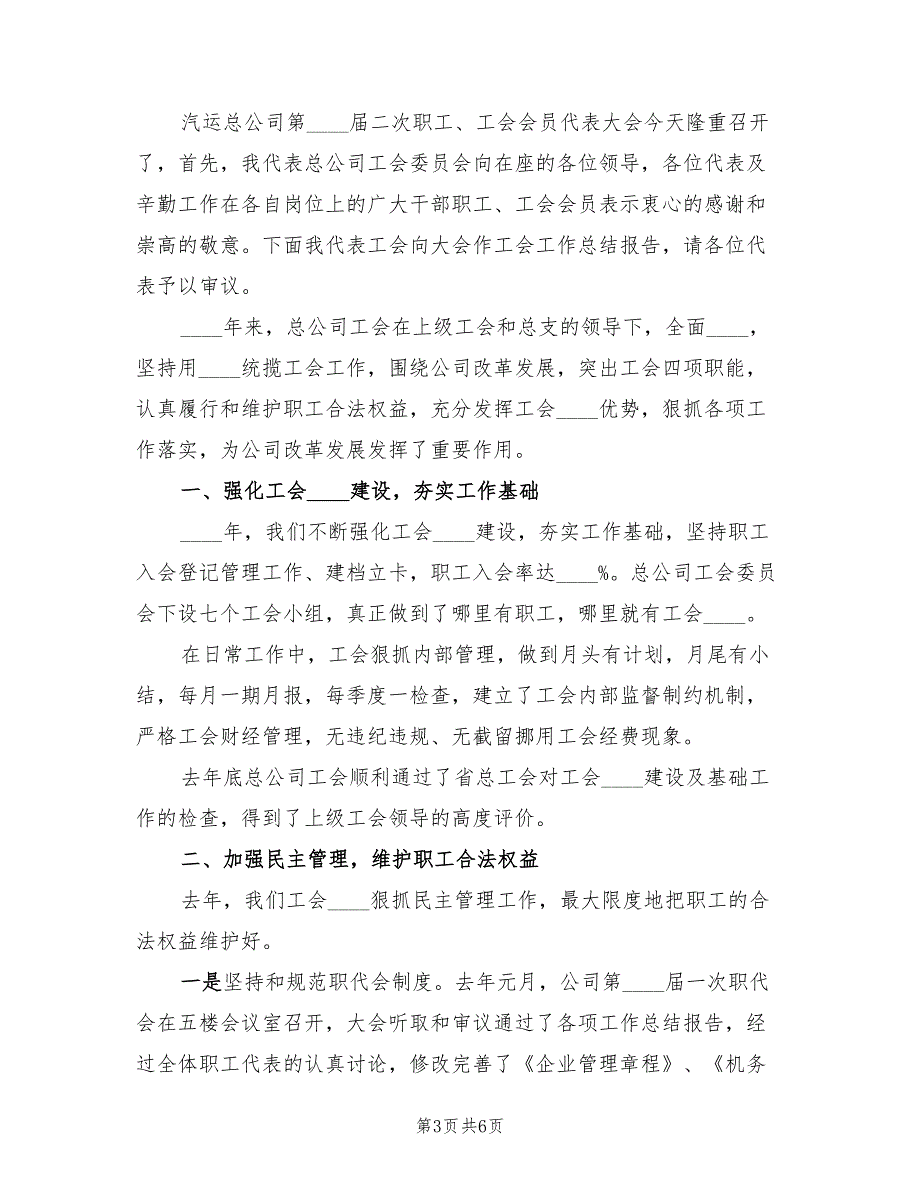 汽运总公司第____届二次职工、工会会员代表大会今天隆重召开
了，首先，我代表总公司工会委员会向在座的各位领导，各位代表及
辛勤工作在各自岗位上的广大干部职工、工会会员表示衷心的感谢和
崇高的敬意。下面我代表工会向大会作工会工作总结报告，请各位代
表予以审议。
____年来，总公司工会在上级工会和总支的领导下，全面____，
坚持用____统揽工会工作，围绕公司改革发展，突出工会四项职能，
认真履行和维护职工合法权益，充分发挥工会____优势，狠抓各项工
作落实，为公司改革发展发挥了重要作用。
一、强化工会____建设，夯实工作基础
____年，我们不断强化工会____建设，夯实工作基础，坚持职工
入会登记管理工作、建档立卡，职工入会率达____%。总公司工会委员
会下设七个工会小组，真正做到了哪里有职工，哪里就有工会____。
在日常工作中，工会狠抓内部管理，做到月头有计划，月尾有小
结，每月一期月报，每季度一检查，建立了工会内部监督制约机制，
严格工会财经管理，无违纪违规、无截留挪用工会经费现象。
去年底总公司工会顺利通过了省总工会对工会____建设及基础工
作的检查，得到了上级工会领导的高度评价。
二、加强民主管理，维护职工合法权益
去年，我们工会____狠抓民主管理工作，最大限度地把职工的合
法权益维护好。
一是坚持和规范职代会制度。去年元月，公司第____届一次职代
会在五楼会议室召开，大会听取和审议通过了各项工作总结报告，经
过全体职工代表的认真讨论，修改完善了《企业管理章程》、《机务
第3页共6页